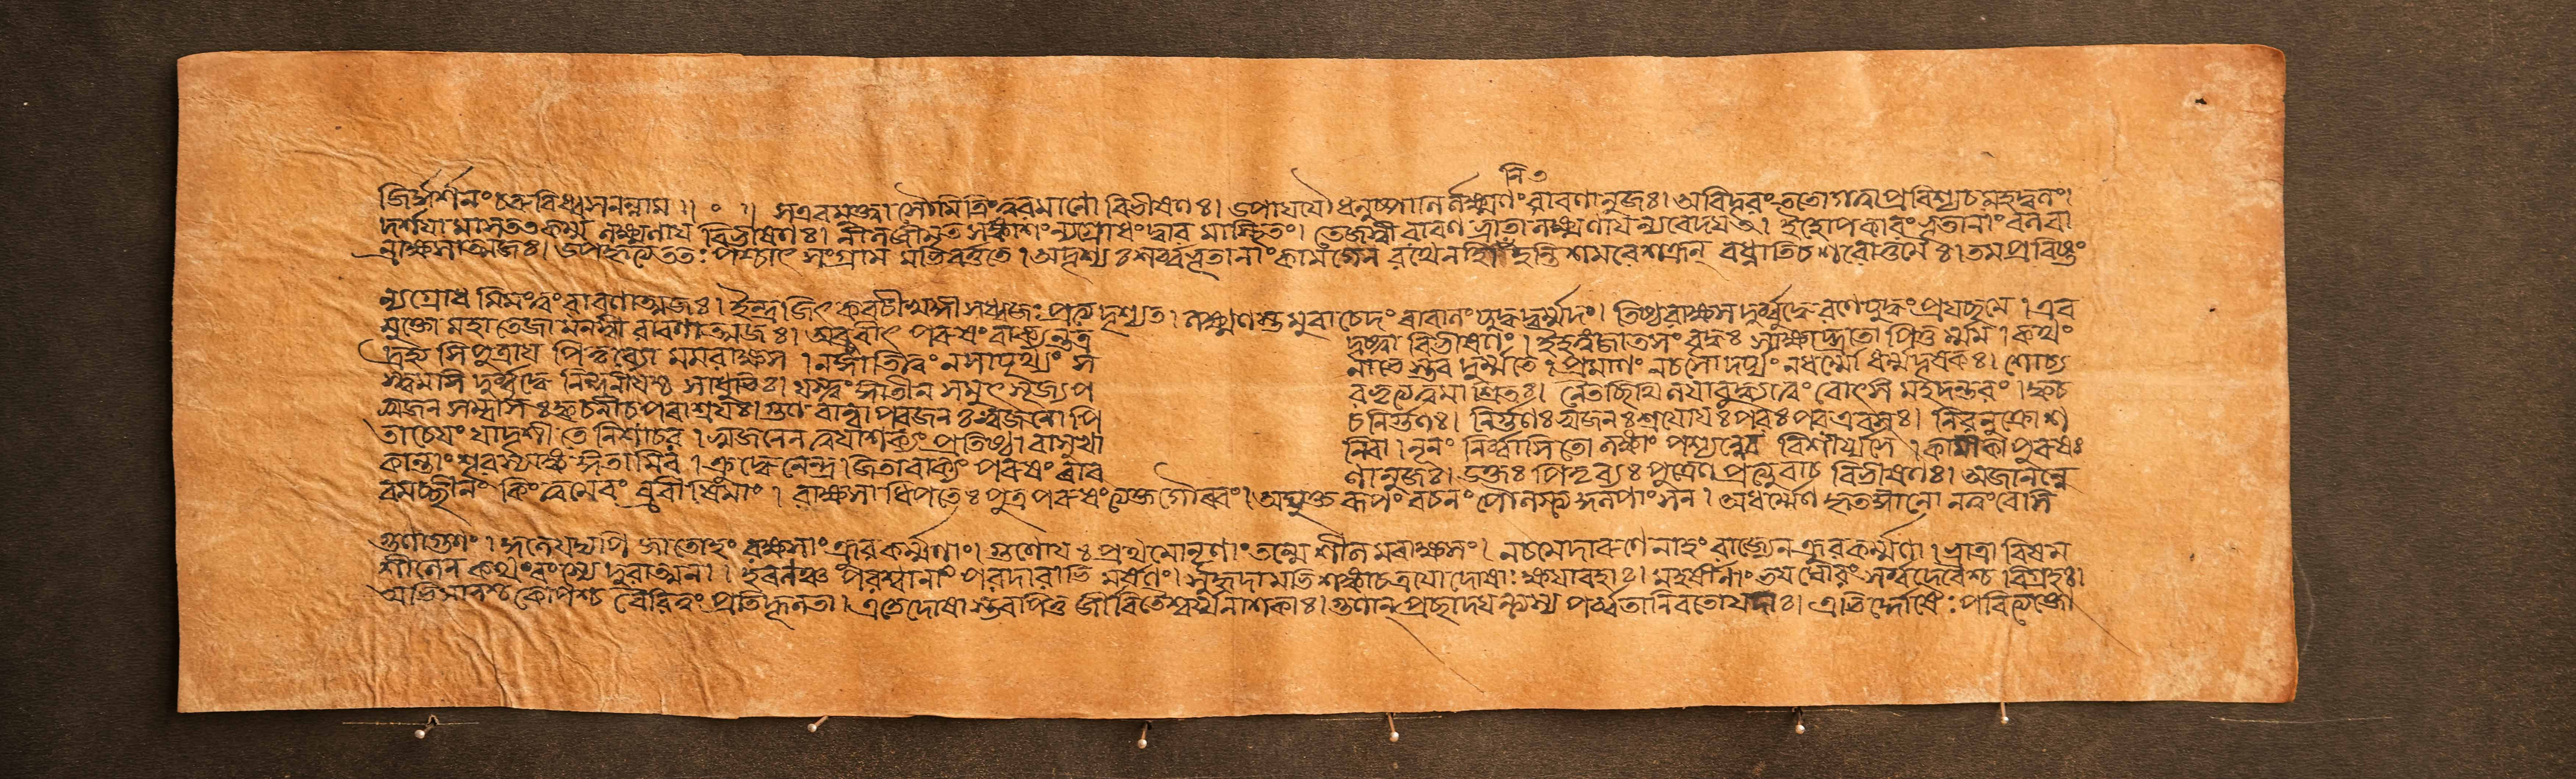 নি ৩
জির্দ্দর্শনং চক্রুবিধ্বংসনন্নাম ॥ ০ ॥ সএবমুক্ত্বা সৌমিত্রিং ত্বরমাণো বিভীষণঃ। উপাযাযৌ ধনুষ্পাণির্লক্ষ্মণং রাবণানুজঃ। অবিদূরং ততোগত্বা প্রবিশ্যচমহদ্বনং।
দর্শযা মাসতত্কর্ম্ম লক্ষ্মণায বিভীষণঃ। নীলজীমূত সঙ্কাশং ন্যগ্রোধং দ্বার মাস্থিতং। তেজস্বী রাবণ ভ্রাতা লক্ষ্মণায ন্যবেদযৎ। ইহোপকারং ভূতানাং বলবা
ন্রাক্ষসাত্মজঃ। উপহৃত্য ততঃ পশ্চাৎ সংগ্রাম মভিবর্ত্ততে। অদৃশ্যঃ শর্ব্বভূতানাং কামগেন রথেনহি। হন্তি শমরেশত্রূন্ বধ্নাতিচ শরোত্তমৈঃ। তমপ্রবিষ্টং
ন্যগ্রোধ মিমংত্বং রাবণাত্মজঃ। ইন্দ্রজিৎ কবচীখড়্গী সধ্বজঃ প্রত্যদৃশ্যত। লক্ষ্মণস্ত মুবাচেদং রাবণিং যুদ্ধদুর্ম্মদং। তিষ্ঠরাক্ষস দুর্ব্বুদ্ধে রণেযুদ্ধং প্রযচ্ছমে। এব
মুক্তো মহাতেজা মনস্বী রাবণাত্মজঃ। অব্রবীৎ পরুষং বাক্যন্তত্র দৃষ্ট্বা বিভীষণং। ইহত্বংজাতসং বৃদ্ধঃ সাক্ষাদ্ভ্রাতা পিতু র্ম্মম। কথং
দ্রুহ্য সিপুত্রায পিতৃব্যো মমরাক্ষস। নজ্ঞাতিত্বং নসাপৃথ্যং স নাতে স্তব দুর্ম্মতে। প্রমাণং নচসোদর্য্যং নধর্ম্মো ধর্ম্মদূষকঃ। শোচ্য
স্ত্বমসি দুর্ব্বুদ্ধে নিন্দনীযশ্চ সাধুভিঃ। যস্ত্বং জ্ঞাতীন সমুৎসৃজ্যপ রভৃত্যত্বমা শ্রিতঃ। নৈতচ্ছিথি লযাবুদ্ধ্যাত্বং বেৎসি মহদন্তরং। ক্বচ
স্বজন সম্বাসঃ ক্বচনীচপরাশ্রযঃ। গুণ বান্বা পরজনঃ স্বজনোপি চনির্গুণঃ। নির্গুণঃ স্বজনঃ শ্রেযোযঃ পরঃ পরএবসঃ। নিরনুক্রোশ
তাচেযং যাদৃশী তে নিশাচর। স্বজনেন ত্বযাশক্যং প্রতিষ্ঠা বাসুখা নিবা। নূনং নির্ব্বাসিতো লঙ্কাং
কান্তাং
বমচ্ছীলং কিং ত্বমেবং ব্রবীষিমাং। রাক্ষসা ধিপতেঃ পুত্র পরুষংত্যক্তগৌরবং। অযুক্ত রূপং বচনং পৌলস্ত্য কুলপাংসন। অধর্ম্মেণ
গুণাগুণং। কুলেযদ্যপি জাতোহং রক্ষসাং ক্রূরকর্ম্মণাং। গুণোযঃ প্রথমোনৃণাং তন্মে শীল মরাক্ষসং। নচমেদারুণেনাহং রাজ্যেন ক্রূরকর্ম্মণা। ভ্রাত্রা বিষম
শীলেন কথং দুরাত্মনা। হরণঞ্চ পরস্বানাং পরদারাভি মর্ষণং। সুহৃদামতি শঙ্কাচত্রযোদোষাঃ ক্ষযাবহাঃ। মহর্ষীনাং বধোঘোরঃ সর্ব্বদেবৈশ্চ বিগ্রহঃ।
অভিমানশ্চকোপশ্চ বৈরিত্বং প্রতিকূলতা। এতেদোষা স্তবপিতু র্জীবিতৈশ্বর্য্যনাশকাঃ। গুণান্ প্রচ্ছাদযন্ত্যস্য পর্ব্বতানিবতোযদাঃ। এভির্দ্দোষৈঃ পরিত্যক্তো